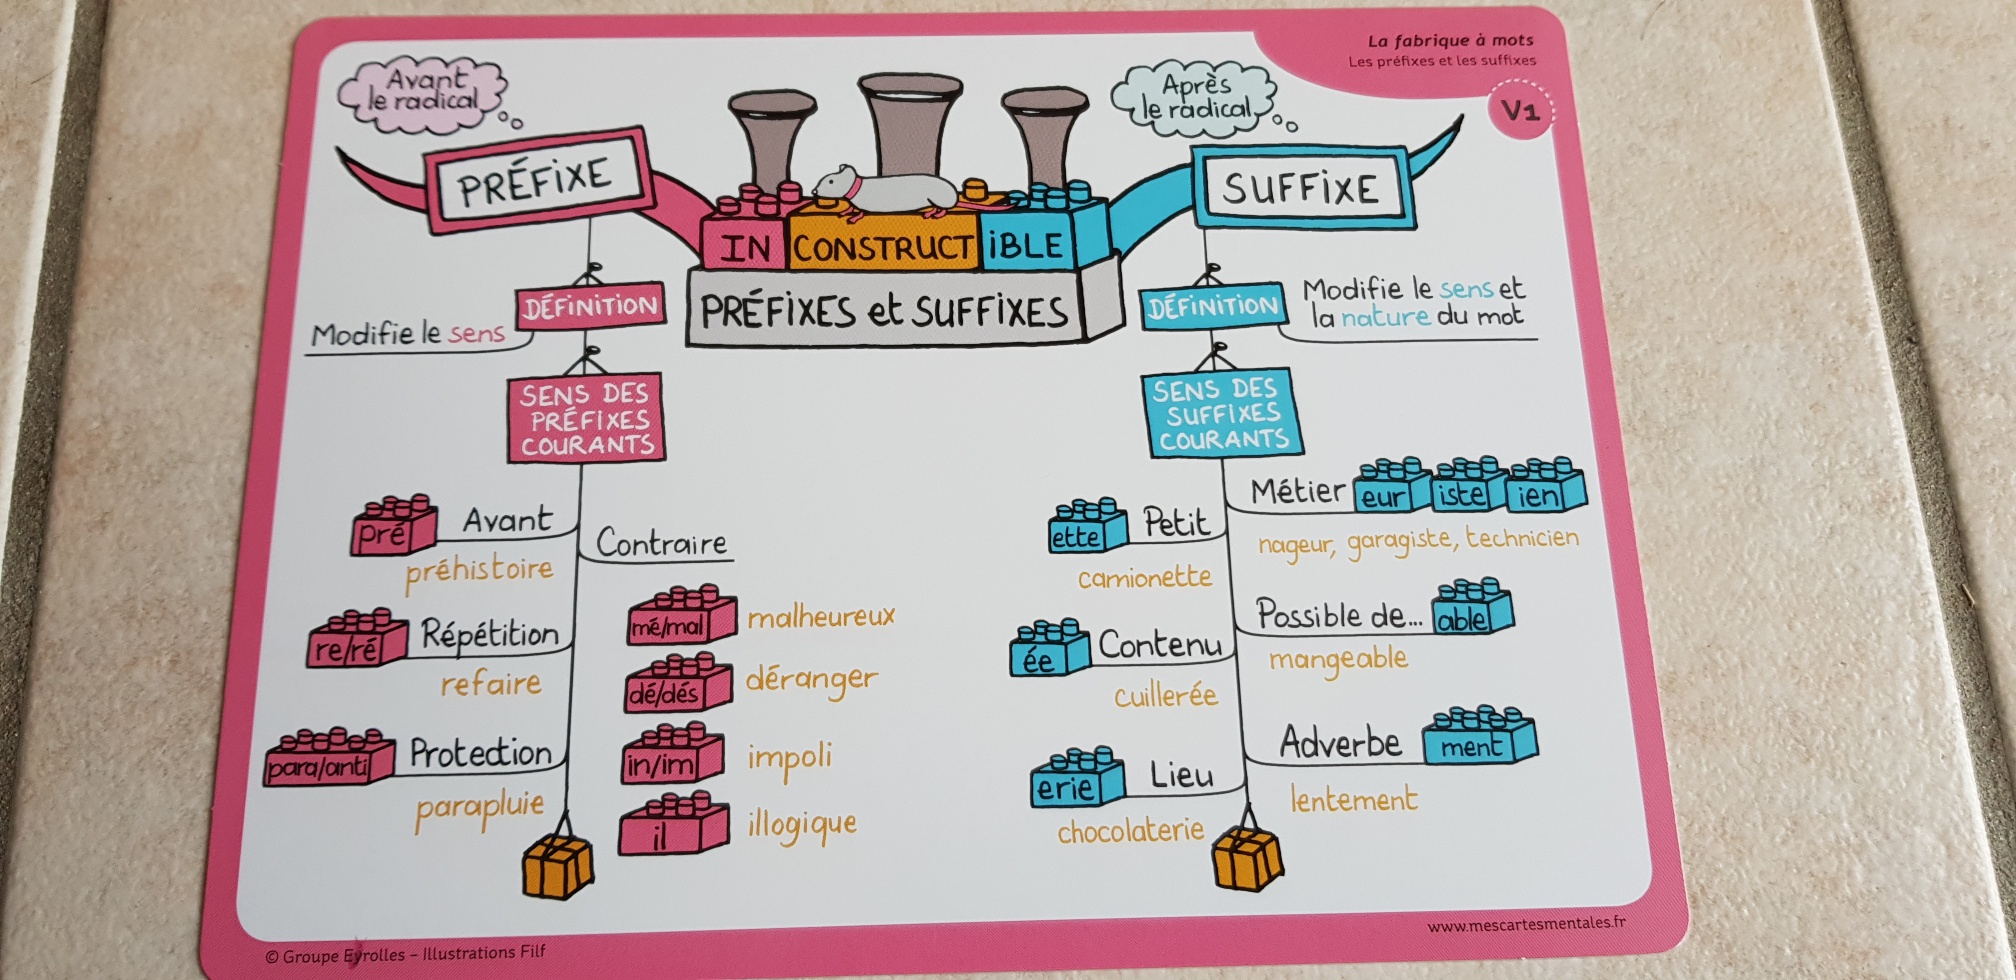 La fabrique à mots
Les préfixes et les suffixes
V1
Avant
le radical
Après
le radical
PRÉFIXE
SUFFIXE
IN CONSTRUCT IBLE
PRÉFIXES et SUFFIXES
DÉFINITION
Modifie le sens
SENS DES
PRÉFIXES
COURANTS
pré Avant
préhistoire
re/ré Répétition
refaire
para/anti Protection
parapluie
Contraire
mé/mal malheureux
dé/dés déranger
in/im impoli
il illogique
DÉFINITION
Modifie le sens et
la nature du mot
SENS DES
SUFFIXES
COURANTS
ette Petit
camionette
ée Contenu
cuillerée
erie Lieu
chocolaterie
Métier eur iste ien
nageur, garagiste, technicien
Possible de... able
mangeable
Adverbe ment
lentement
© Groupe Eyrolles – Illustrations Filf
www.mescartesmentales.fr